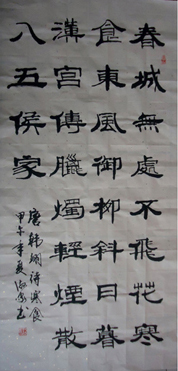 春城無處不飛花寒
食東風御柳斜日暮
漢宮傳臘燭輕煙散
入五侯家
唐韓翃詩寒食
甲午年夏